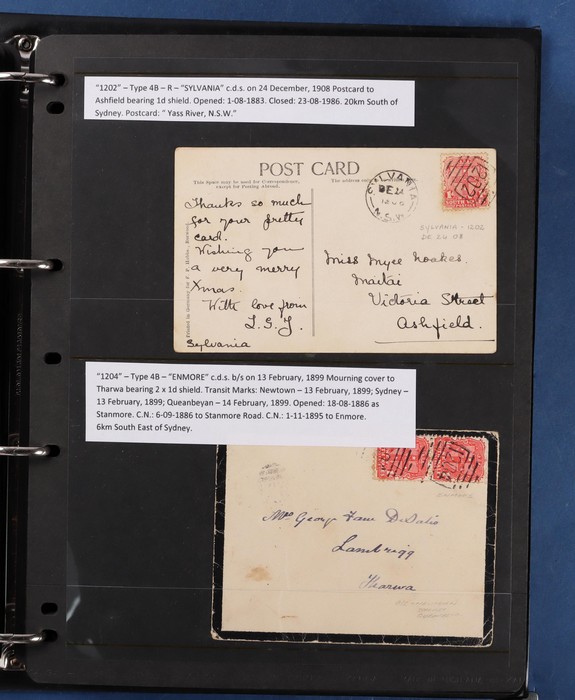 "1202" – Type 4B – R – "SYLVANIA" c.d.s. on 24 December, 1908 Postcard to
Ashfield bearing 1d shield. Opened: 1-08-1883. Closed: 23-08-1986. 20km South of
Sydney. Postcard: " Yass River, N.S.W."
POST CARD
This Space may be used for Correspondence,
except for Posting Abroad.
The address only
Thanks so much
for your pretty
card.
Wishing you
a very merry
Xmas.
With love from
L.S.J.
Sylvania
SYLVANIA
DE 24
N.S.W.
SYLVANIA - 1202
DE 24 08
Miss Myee Noakes.
Victoria Street
Ashfield.
"1204" – Type 4B – "ENMORE" c.d.s. b/s on 13 February, 1899 Mourning cover to
Tharwa bearing 2 x 1d shield. Transit Marks: Newtown – 13 February, 1899; Sydney –
13 February, 1899; Queanbeyan – 14 February, 1899. Opened: 18-08-1886 as
Stanmore. C.N.: 6-09-1886 to Stanmore Road. C.N.: 1-11-1895 to Enmore.
6km South East of Sydney.
Mrs George Fane De Salis
Lambrigg
Tharwa